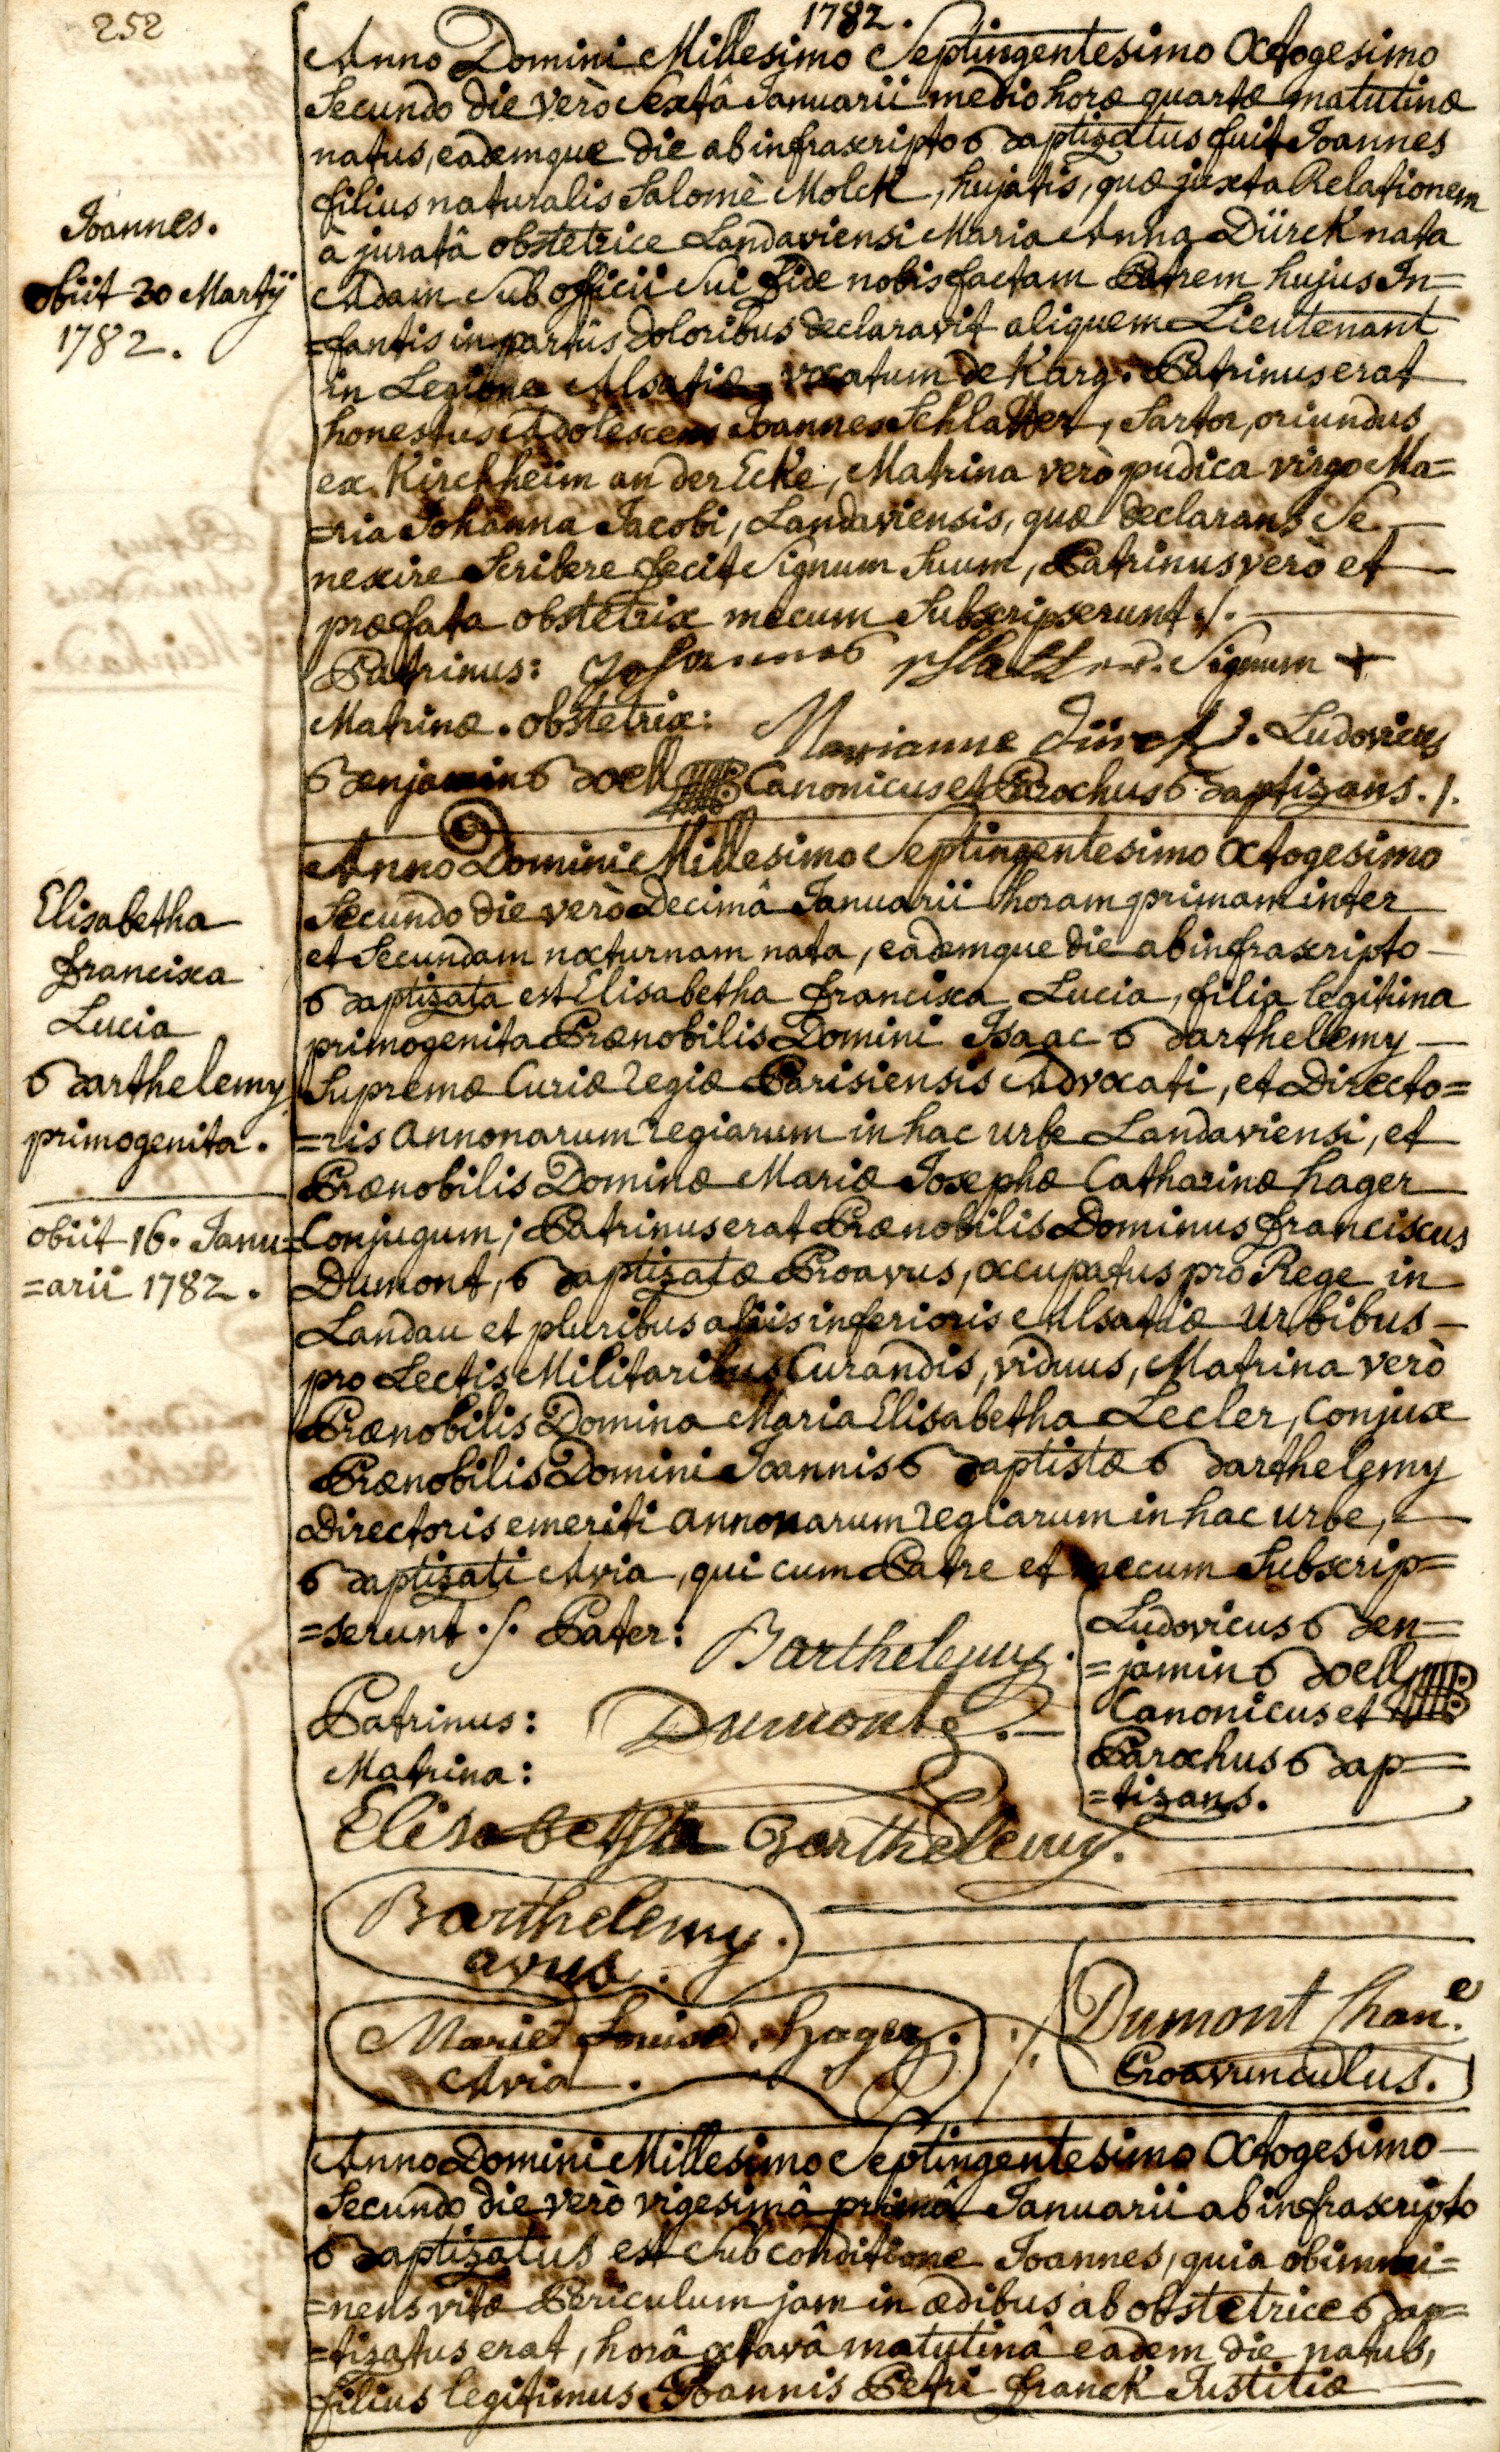 252
1782.
Anno Domini Millesimo Septingentesimo Octogesimo
Secundo die verò Sextâ Ianuarii medio horæ quartæ matutinæ
natus, eademque die ab infrascripto Baptizatus fuit Ioannes
filius naturalis Salomè Molck, hujatis, quæ juxta Relationem
à juratâ obstetrice Landaviensi Maria Anna Dürck nata
Adam sub officii sui fide nobis factam Patrem hujus In=
=fantis in partûs doloribus declaravit aliquem Lieutenant
in Legione Alsatiæ vocatum de Karg. Patrinus erat
honestus Adolescens Ioannes Schlatter, Sartor, oriundus
ex Kirchheim an der Ecke, Matrina verò pudica virgo Ma=
=ria Johanna Jacobi, Landaviensis, quæ declarans Se
nescire Scribere fecit Signum Suum, Patrinus verò et
præfata obstetrix mecum Subscripserunt ./.
Patrinus: Johannes Schlatter. Signum +
Matrinæ. obstetrix: Marianne Dürck. Ludovicus
Benjamin Boell Canonicus et Parochus Baptizans ./.
Ioannes.
obiit 30 Martÿ
1782.
Anno Domini Millesimo Septingentesimo Octogesimo
Secundo die verò Decimâ Ianuarii horam primam inter
et Secundam nocturnam nata, eademque die ab infrascripto
Baptizata est Elisabetha Francisca Lucia, filia legitima
primogenita Prænobilis Domini Isaac Barthellemy
Supremæ Curiæ regiæ Parisiensis Advocati, et Directo=
=ris annonarum regiarum in hac urbe Landaviensi, et
Prænobilis Dominæ Mariæ Josephæ Catharinæ hager
Conjugum; Patrinus erat Prænobilis Dominus Franciscus
Dumont, Baptizatæ Proavus, occupatus pro Rege in
Landau et pluribus aliis inferioris Alsatiæ urbibus
pro Lectis Militaribus Curandis, viduus, Matrina verò
Prænobilis Domina Maria Elisabetha Lecler, Conjux
Prænobilis Domini Ioannis Baptistæ Barthelemy
Directoris emeriti annonarum regiarum in hac urbe,
Baptizati Avia, qui cum Patre et mecum Subscrip=
=serunt ./. Pater: Barthelemy.
Patrinus: Dumont.
Matrina:
Elisabetha Barthelemy.
Ludovicus Ben=
=jamin Boell
Canonicus et
Parochus Bap=
=tizans.
Barthelemy.
avus.
Marie Louise hager.
Avia.
Dumont Chan.e
Proavunculus.
Elisabetha
Francisca
Lucia
Barthelemy
primogenita.
obiit 16. Ianu=
=arii 1782.
Anno Domini Millesimo Septingentesimo Octogesimo
Secundo die verò vigesimâ primâ Ianuarii ab infrascripto
Baptizatus est sub conditione Ioannes, quia ob immi=
=nens vitæ Periculum jam in ædibus ab obstetrice Bap=
=tizatus erat, horâ octavâ matutinâ eadem die natus,
filius legitimus Ioannis Petri Franck Iustitiæ